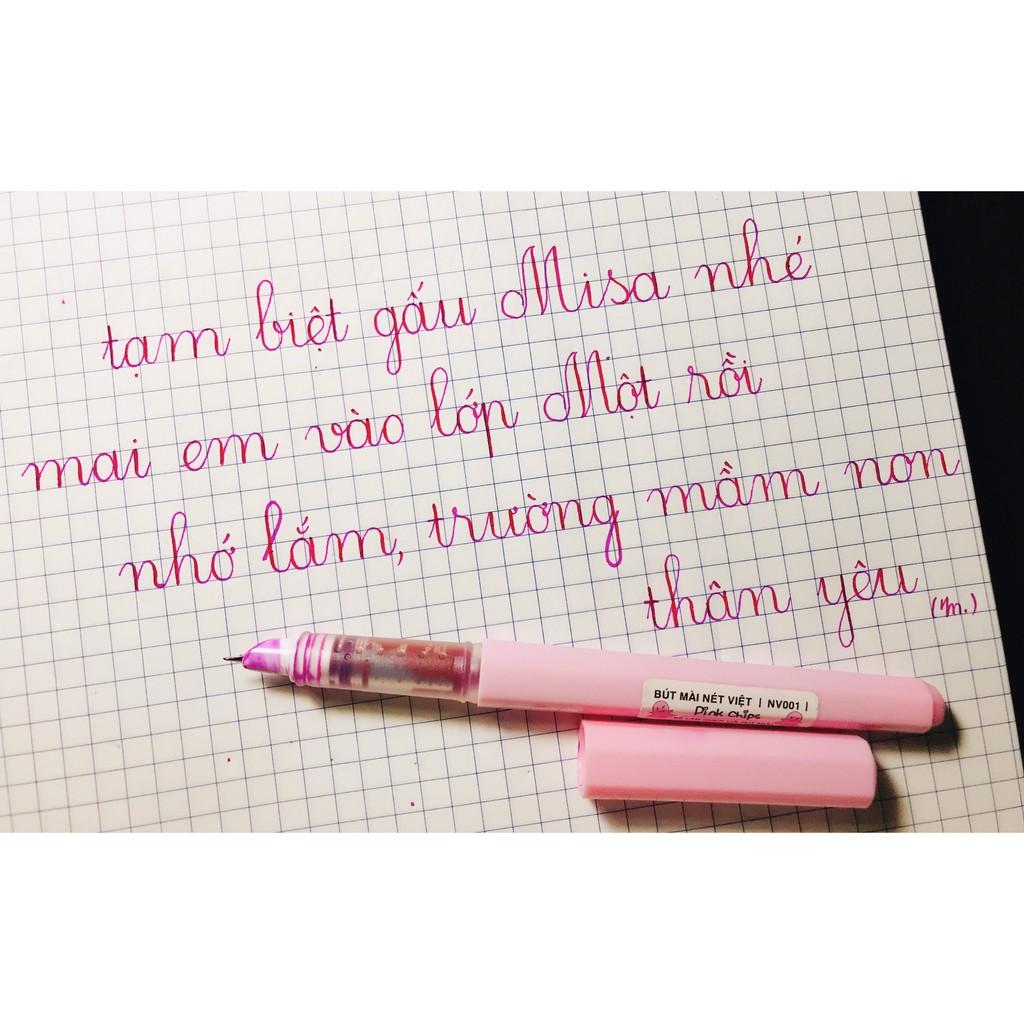 tạm biệt gấu Misa nhé
mai em vào lớp Một rồi
nhớ lắm, trường mầm non
thân yêu (m.)
BÚT MÀI NÉT VIỆT | NV001 |
Pink Chips